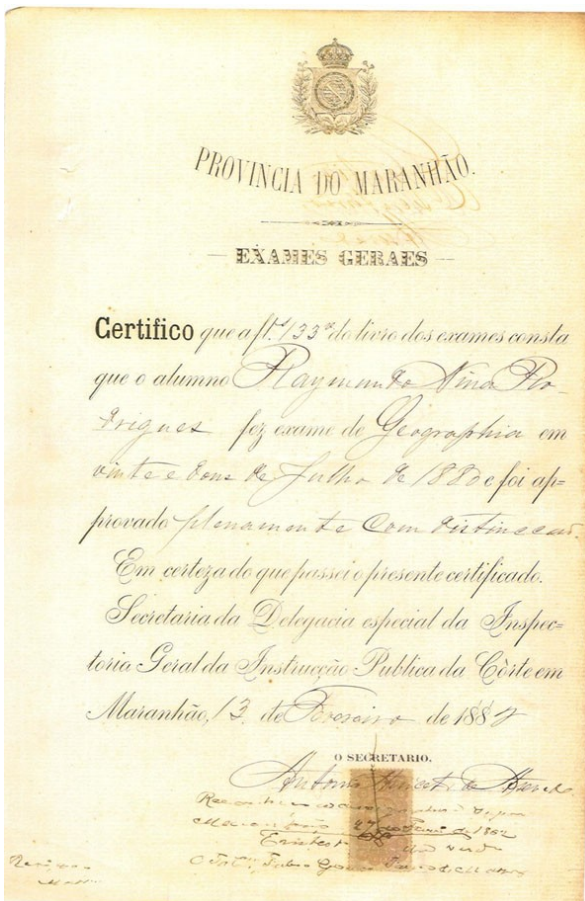 PROVINCIA DO MARANHÃO.
EXAMES GERAES
Certifico que a fl. 133 do livro dos exames consta
que o alumno Raymundo Nina Ro-
drigues fez exame de Geographia em
vinte e dous de Julho de 1880 e foi ap-
provado plenamente com distincçao.
Em certeza do que passei o presente certificado.
Secretaria da Delegacia especial da Inspec-
toria Geral da Instrucção Publica da Côrte em
Maranhão, 13 de Fevereiro de 1882
O SECRETARIO.
Antonio
Maranhão 27 de 1882